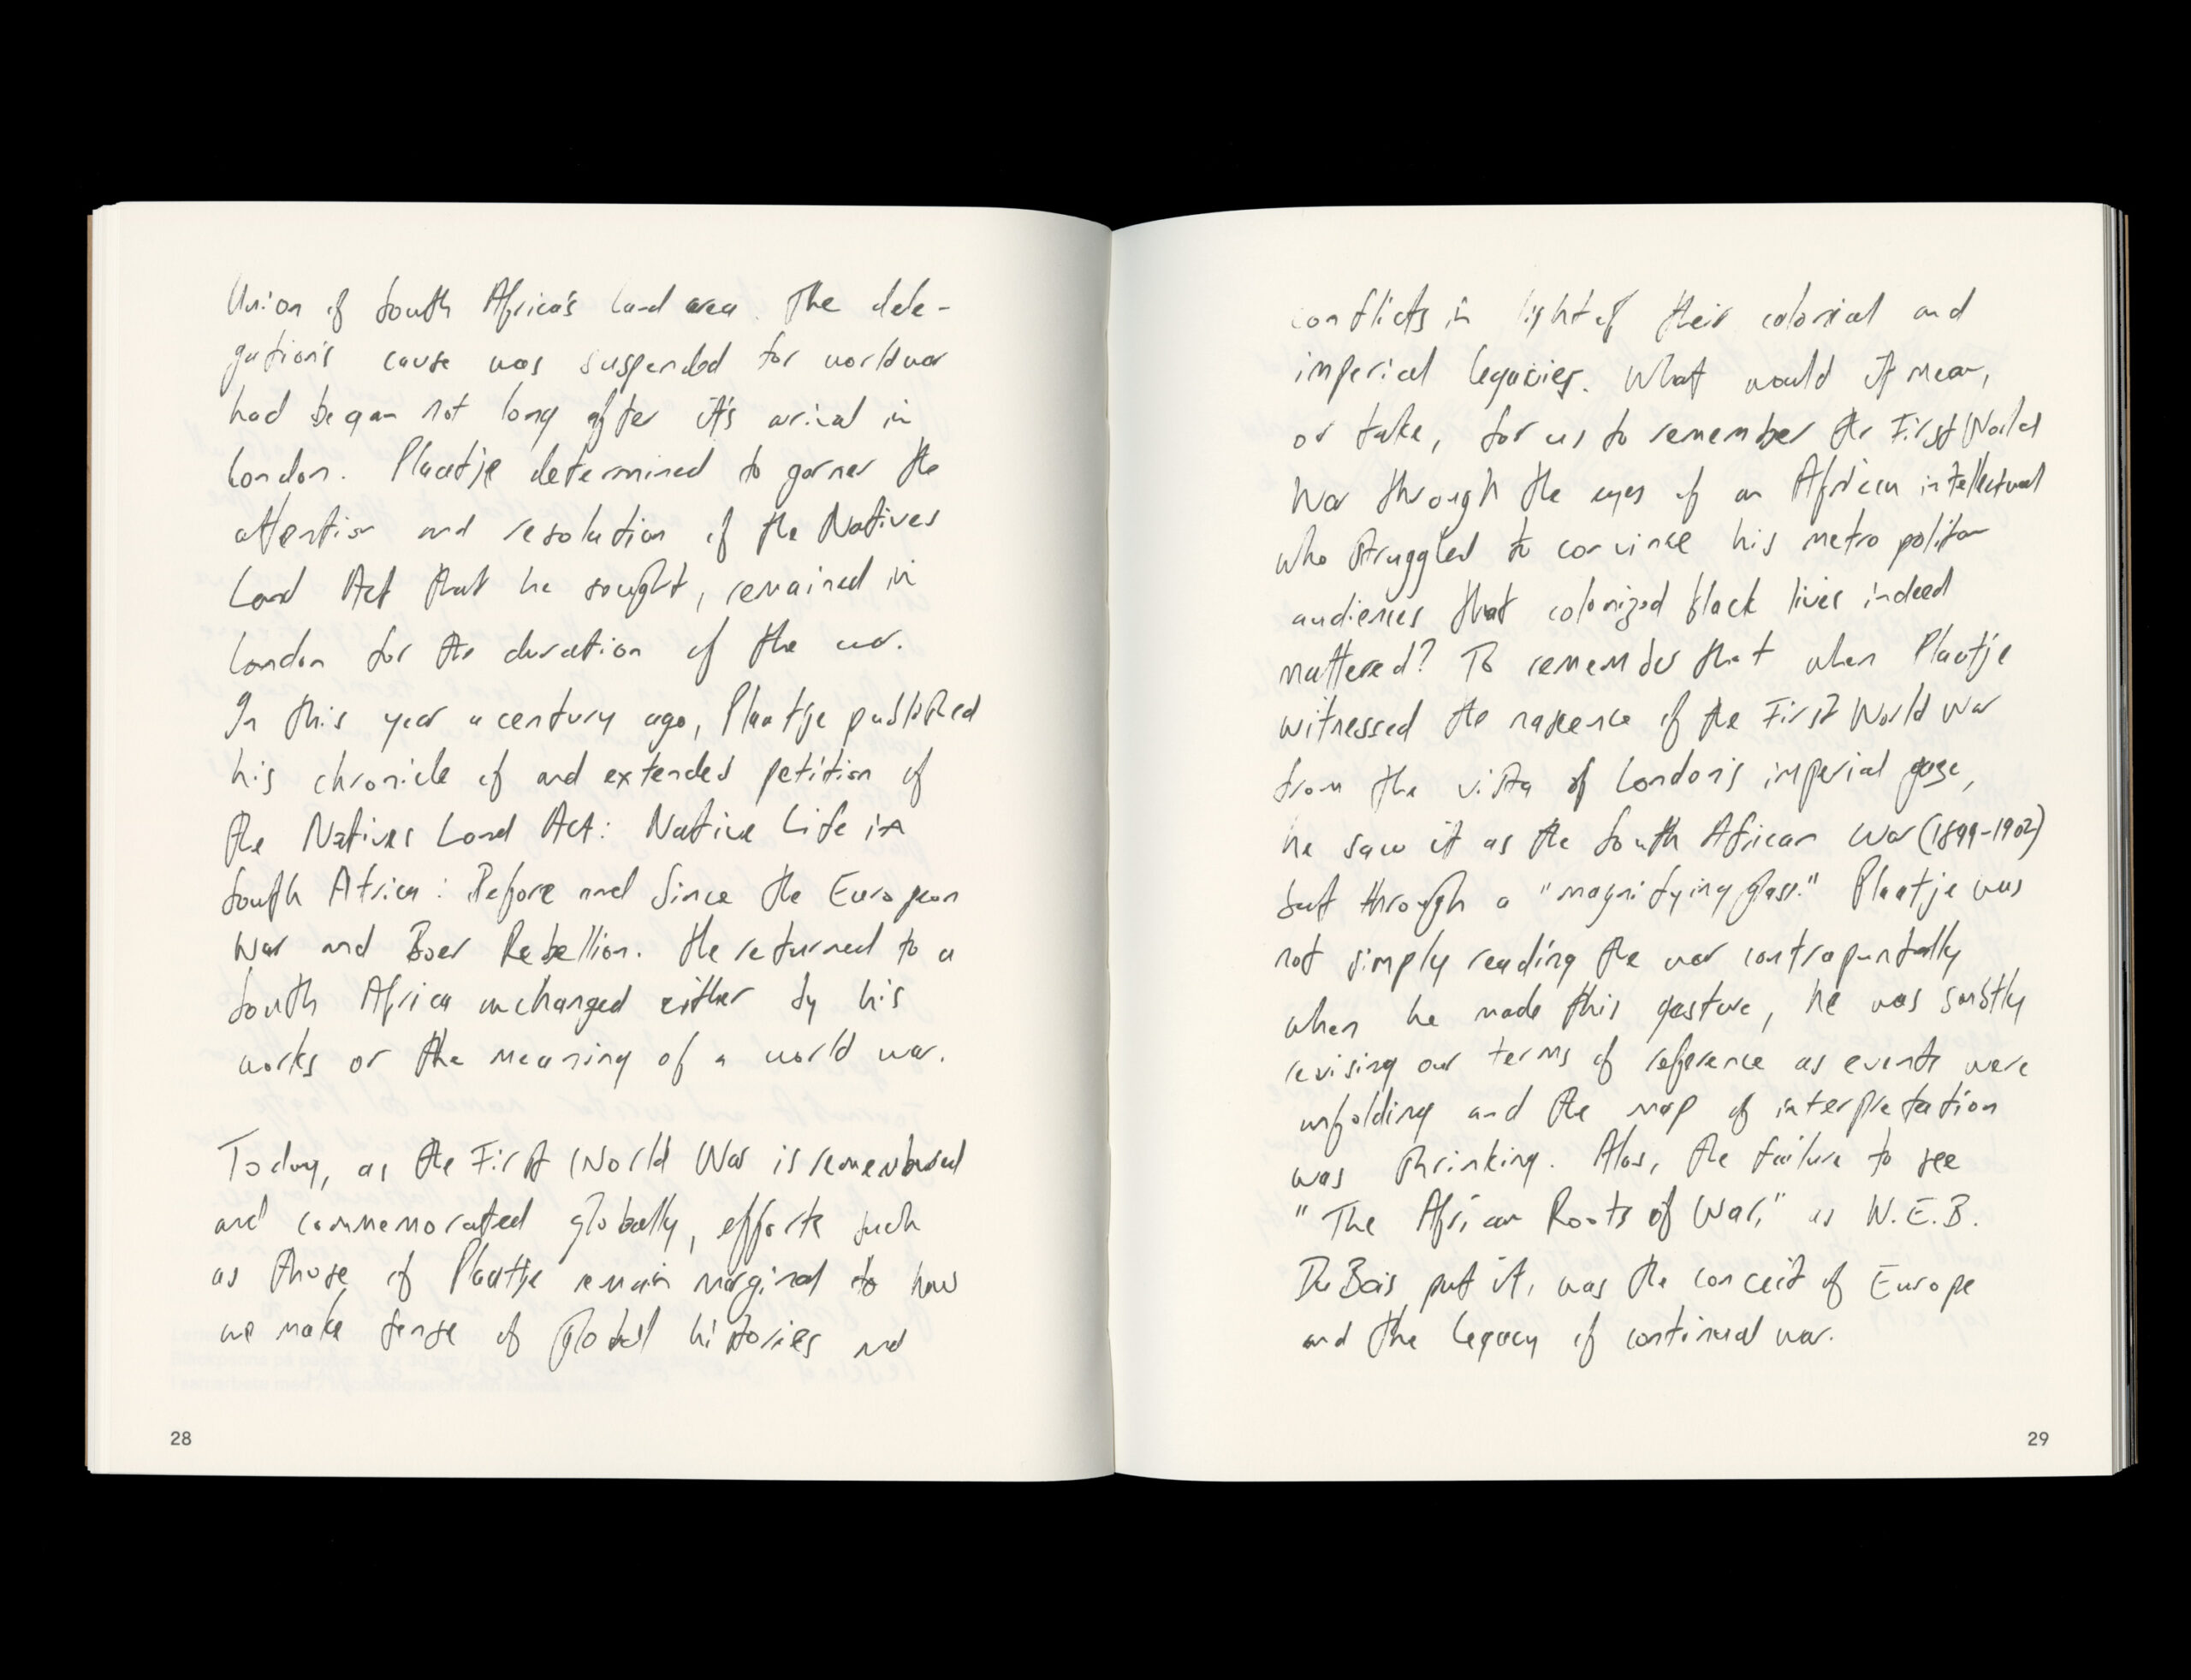 Union of South Africa's land area. The dele-
gation's cause was suspended for world war
had began not long after it's arival in
London. Plaatje determined to garner the
attention and resolution of the Natives
Land Act that he sought, remained in
London for the duration of the war.
In this year a century ago, Plaatje published
his chronicle of and extended petition of
the Natives Land Act: Native Life in
South Africa: Before and Since the European
War and Boer Rebellion. He returned to a
South Africa unchanged either by his
works or the meaning of a world war.
Today, as the First World War is remembered
and commemorated globally, efforts such
as those of Plaatje remain marginal to how
we make sense of global histories and
28
conflicts in light of their colonial and
imperial legacies. What would it mean,
or take, for us to remember the First World
War through the eyes of an African intellectual
who struggled to convince his metropolitan
audiences that colonized black lives indeed
mattered? To remember that when Plaatje
witnessed the of the First World War
from the vista of London's imperial gaze,
he saw it as the South African War (1899-1902)
but through a "magnifying glass." Plaatje was
not simply reading the war contrapuntally
when he made this gesture, he was subtly
revising our terms of reference as events were
unfolding and the map of interpretation
was shrinking. Alas, the failure to see
"The African Roots of War," as W.E.B.
Du Bois put it, was the conceit of Europe
and the legacy of continual war.
29